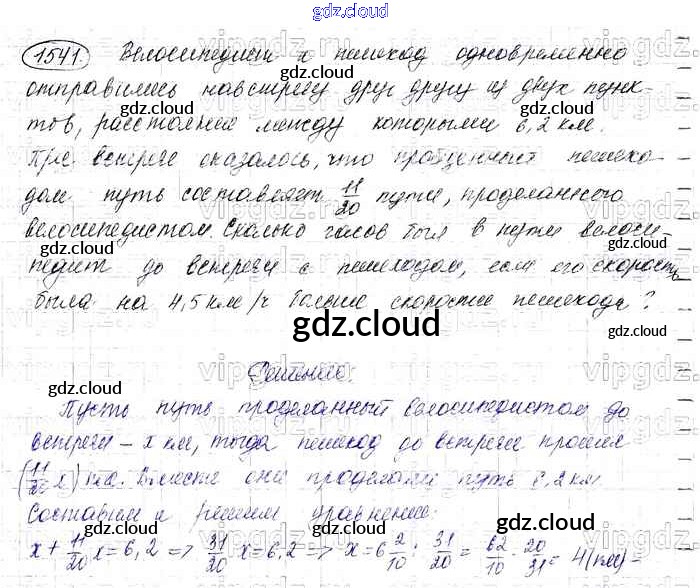 gdz.cloud
1541. Велосипедист и пешеход одновременно
отправились навстречу друг другу из двух пунк-
тов, расстояние между которыми 6,2 км.
При встрече оказалось, что пройденный пешехо-
дом путь составляет 11/20 пути, проделанного
велосипедистом. Сколько часов был в пути велоси-
педист до встречи с пешеходом, если его скорость
была на 4,5 км/ч больше скорости пешехода?
gdz.cloud
Решение.
Пусть путь проделанный велосипедистом до
встречи – x км, тогда пешеход до встречи прошел
(11/20 x) км. Вместе они проделали путь 6,2 км.
Составим и решим уравнение:
x + 11/20 x = 6,2 => 31/20 x = 6,2 => x = 6 2/10 : 31/20 = 62/10 · 20/31 = 4 (км) –